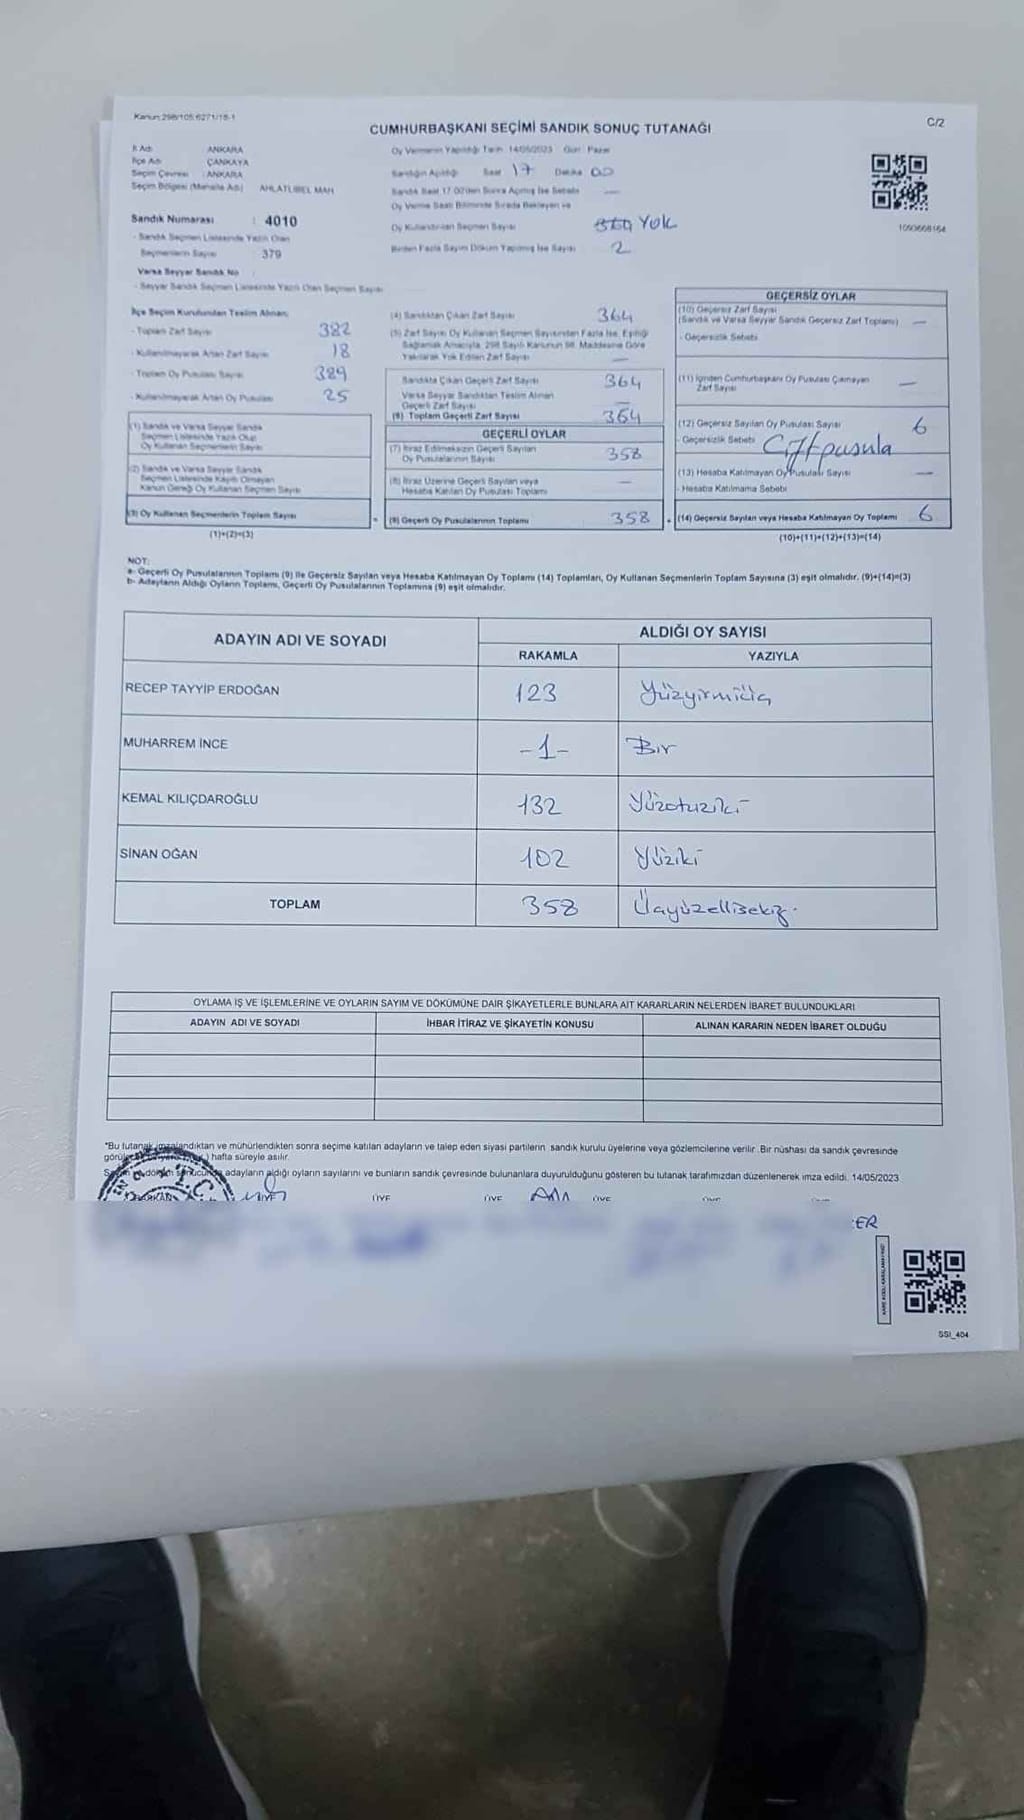 Kanun:298/105;6271/18-1
C/2
CUMHURBAŞKANI SEÇİMİ SANDIK SONUÇ TUTANAĞI
İl Adı : ANKARA
İlçe Adı : ÇANKAYA
Seçim Çevresi : ANKARA
Seçim Bölgesi (Mahalle Adı) : AHLATLIBEL MAH
Sandık Numarası : 4010
- Sandık Seçmen Listesinde Yazılı Olan
Seçmenlerin Sayısı : 379
Varsa Seyyar Sandık No :
- Seyyar Sandık Seçmen Listesinde Yazılı Olan Seçmen Sayısı
Oy Vermenin Yapıldığı Tarih 14/05/2023 Gün Pazar
Sandığın Açıldığı Saat 17 Dakika 00
Sandık Saat 17.00'den Sonra Açılmış İse Sebebi —
Oy Verme Saati Bitiminde Sırada Bekleyen ve
Oy Kullandırılan Seçmen Sayısı YOK
Birden Fazla Sayım Döküm Yapılmış İse Sayısı 2
1090668164
İlçe Seçim Kurulundan Teslim Alınan;
- Toplam Zarf Sayısı 382
- Kullanılmayarak Artan Zarf Sayısı 18
- Toplam Oy Pusulası Sayısı 389
- Kullanılmayarak Artan Oy Pusulası 25
(1) Sandık ve Varsa Seyyar Sandık
Seçmen Listesinde Yazılı Olup
Oy Kullanan Seçmenlerin Sayısı
(2) Sandık ve Varsa Seyyar Sandık
Seçmen Listesinde Kayıtlı Olmayan
Kanun Gereği Oy Kullanan Seçmen Sayısı
(3) Oy Kullanan Seçmenlerin Toplam Sayısı
(1)+(2)=(3)
(4) Sandıktan Çıkan Zarf Sayısı 364
(5) Zarf Sayısı Oy Kullanan Seçmen Sayısından Fazla İse, Eşitliği
Sağlamak Amacıyla, 298 Sayılı Kanunun 98. Maddesine Göre
Yakılarak Yok Edilen Zarf Sayısı —
Sandıkta Çıkan Geçerli Zarf Sayısı 364
Varsa Seyyar Sandıktan Teslim Alınan
Geçerli Zarf Sayısı —
(6) Toplam Geçerli Zarf Sayısı 364
GEÇERLİ OYLAR
(7) İtiraz Edilmeksizin Geçerli Sayılan
Oy Pusulalarının Sayısı 358
(8) İtiraz Üzerine Geçerli Sayılan veya
Hesaba Katılan Oy Pusulası Toplamı —
= (9) Geçerli Oy Pusulalarının Toplamı 358
GEÇERSİZ OYLAR
(10) Geçersiz Zarf Sayısı
(Sandık ve Varsa Seyyar Sandık Geçersiz Zarf Toplamı) —
- Geçersizlik Sebebi
(11) İçinden Cumhurbaşkanı Oy Pusulası Çıkmayan
Zarf Sayısı —
(12) Geçersiz Sayılan Oy Pusulası Sayısı 6
- Geçersizlik Sebebi Çift pusula
(13) Hesaba Katılmayan Oy Pusulası Sayısı —
- Hesaba Katılmama Sebebi
+ (14) Geçersiz Sayılan veya Hesaba Katılmayan Oy Toplamı 6
(10)+(11)+(12)+(13)=(14)
NOT:
a- Geçerli Oy Pusulalarının Toplamı (9) ile Geçersiz Sayılan veya Hesaba Katılmayan Oy Toplamı (14) Toplamları, Oy Kullanan Seçmenlerin Toplam Sayısına (3) eşit olmalıdır. (9)+(14)=(3)
b- Adayların Aldığı Oyların Toplamı, Geçerli Oy Pusulalarının Toplamına (9) eşit olmalıdır.
ADAYIN ADI VE SOYADI
ALDIĞI OY SAYISI
RAKAMLA YAZIYLA
RECEP TAYYİP ERDOĞAN 123 Yüzyirmiüç
MUHARREM İNCE -1- Bir
KEMAL KILIÇDAROĞLU 132 Yüzotuziki
SİNAN OĞAN 102 Yüziki
TOPLAM 358 Üçyüzellisekiz.
OYLAMA İŞ VE İŞLEMLERİNE VE OYLARIN SAYIM VE DÖKÜMÜNE DAİR ŞİKAYETLERLE BUNLARA AİT KARARLARIN NELERDEN İBARET BULUNDUKLARI
ADAYIN ADI VE SOYADI İHBAR İTİRAZ VE ŞİKAYETİN KONUSU ALINAN KARARIN NEDEN İBARET OLDUĞU
*Bu tutanak imzalandıktan ve mühürlendikten sonra seçime katılan adayların ve talep eden siyasi partilerin sandık kurulu üyelerine veya gözlemcilerine verilir. Bir nüshası da sandık çevresinde
) hafta süreyle asılır.
adayların aldığı oyların sayılarını ve bunların sandık çevresinde bulunanlara duyurulduğunu gösteren bu tutanak tarafımızdan düzenlenerek imza edildi. 14/05/2023
T.C.
ÜYE ÜYE ÜYE
ER
SSI_404